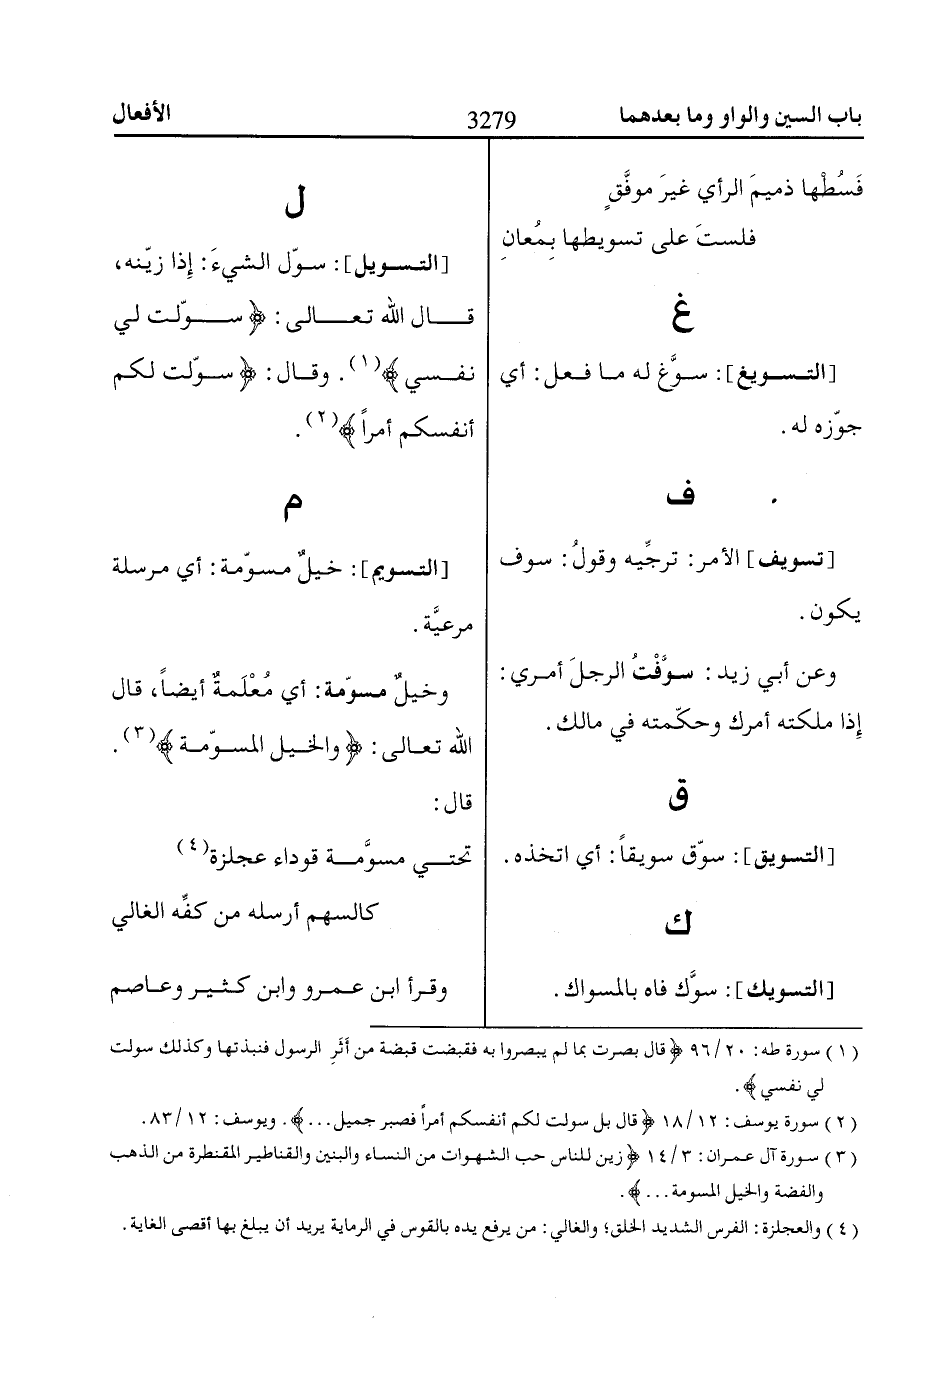 باب السين والواو وما بعدهما
3279
الأفعال
فَسُطْها ذميمَ الرأي غيرَ موفَّقٍ
فلستَ على تسويطها بِمُعانِ
غ
[التـسـويغ]: سـوَّغ له مـا فـعل: أي
جوّزه له.
ف
[تسويف] الأمر: ترجِّيه وقولُ: سوف
يكون.
وعن أبي زيد: سوَّفْتُ الرجلَ أمـري:
إذا ملكته أمرك وحكّمته في مالك.
ق
[التسويق]: سوّق سويقاً: أي اتخذه.
ك
[التسويك]: سوَّك فاه بالمسواك.
ل
[التـسـويل]: سـوّل الشيءَ: إذا زيّنه،
قـال الله تـعـالـى: ﴿ سـوّلت لي
نفـسي ﴾(١). وقـال: ﴿ سـوّلت لكم
أنفسكم أمراً ﴾(٢).
م
[التسويم]: خيلٌ مـسوّمة: أي مرسلة
مرعيَّة.
وخيلٌ مسوّمة: أي مُعْلَمةٌ أيضاً، قال
الله تعـالى: ﴿ والخيـل المسـوّمـة ﴾(٣).
قال:
تحتـي مسوَّمـة قوداء عجلزة(٤)
كالسهم أرسله من كفِّه الغالي
وقـرأ ابن عمـرو وابن كـثيـر وعـاصم
(١) سورة طه: ٢٠/ ٩٦ ﴿ قال بصرت بما لم يبصروا به فقبضت قبضة من أثَرِ الرسول فنبذتها وكذلك سولت
لي نفسي ﴾.
(٢) سورة يوسف: ١٢/ ١٨ ﴿ قال بل سولت لكم أنفسكم أمراً فصبر جميل... ﴾. ويوسف: ١٢/ ٨٣.
(٣) سورة آل عمران: ٣/ ١٤ ﴿ زين للناس حب الشهوات من النساء والبنين والقناطير المقنطرة من الذهب
والفضة والخيل المسومة... ﴾.
(٤) والعجلزة: الفرس الشديد الخلق؛ والغالي: من يرفع يده بالقوس في الرماية يريد أن يبلغ بها أقصى الغاية.